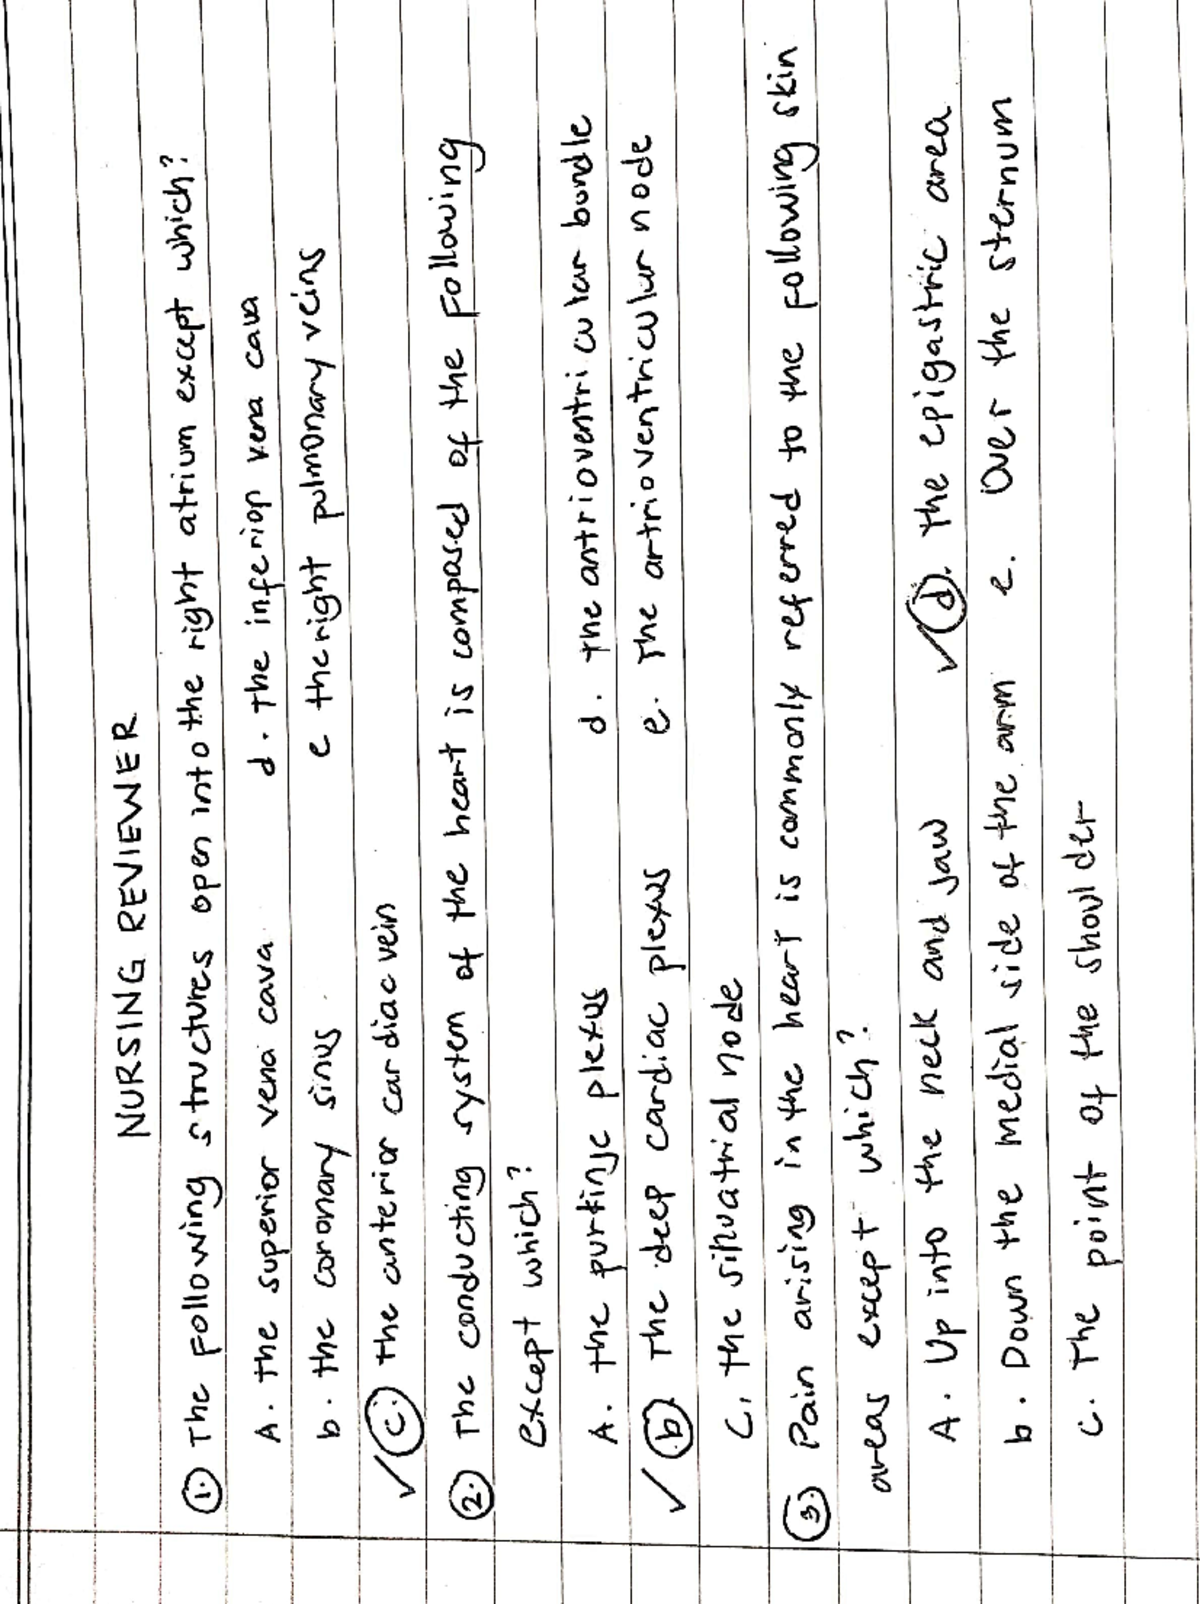 NURSING REVIEWER
1. The following structures open into the right atrium except which?
A. the superior vena cava d. the inferior vena cava
b. the coronary sinus e the right pulmonary veins
✓ c. the anterior cardiac vein
2. The conducting system of the heart is composed of the following
except which?
A. the purkinje plexus d. the antrioventricular bundle
✓ b. The deep cardiac plexus e. The artrioventricular node
C, the sinuatrial node
3. Pain arising in the heart is commonly referred to the following skin
areas except which?
A. Up into the neck and jaw ✓ d. the epigastric area
b. Down the medial side of the arm e. Over the sternum
c. The point of the shoulder